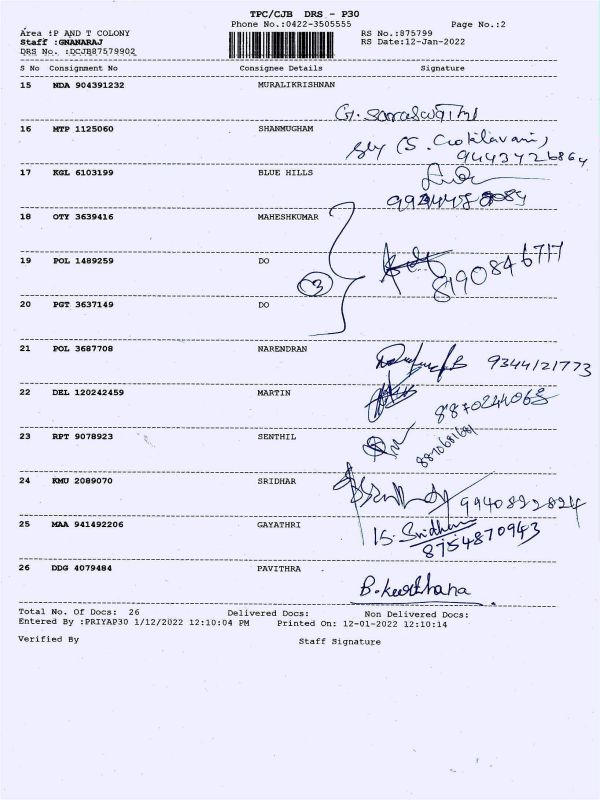 TPC/CJB DRS - P30
Phone No.:0422-3505555 Page No.:2
Area :P AND T COLONY RS No.:875799
Staff :GNANARAJ RS Date:12-Jan-2022
DRS No. :DCJB87579902
S No Consignment No Consignee Details Signature
15 NDA 904391232 MURALIKRISHNAN
G. Saraswathi
16 MTP 1125060 SHANMUGHAM
(S. Kokilavani)
9443726864
17 KGL 6103199 BLUE HILLS
18 OTY 3639416 MAHESHKUMAR
19 POL 1489259 DO
3 8190846717
20 PGT 3637149 DO
21 POL 3687708 NARENDRAN
9344121773
22 DEL 120242459 MARTIN
8870244068
23 RPT 9078923 SENTHIL
24 KMU 2089070 SRIDHAR
9940892824
25 MAA 941492206 GAYATHRI
Sridharan
8754870943
26 DDG 4079484 PAVITHRA
B. Keerthana
Total No. Of Docs: 26 Delivered Docs: Non Delivered Docs:
Entered By :PRIYAP30 1/12/2022 12:10:04 PM Printed On: 12-01-2022 12:10:14
Verified By Staff Signature